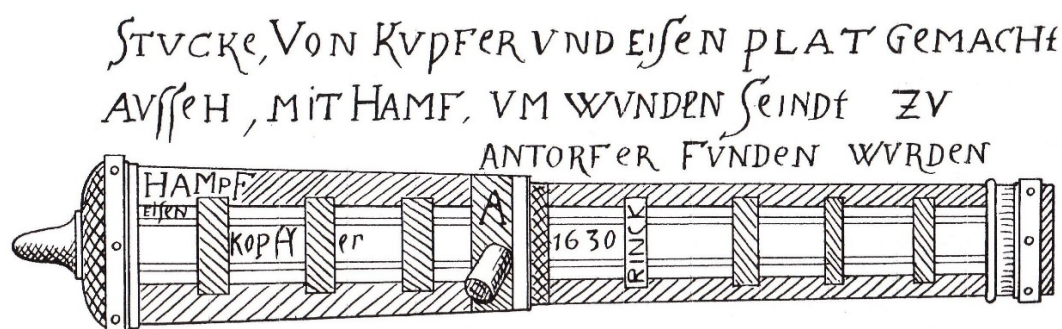 STVCKe, VON KVPFER VND EISEN PLAT GEMACHt
AVSSEH, MIT HAMF, VM WVNDEN SEINDt ZV
ANTORFER FVNDEN WVRDEN
HAMPF
EISEN
KOPff er
A
1630
RINCK